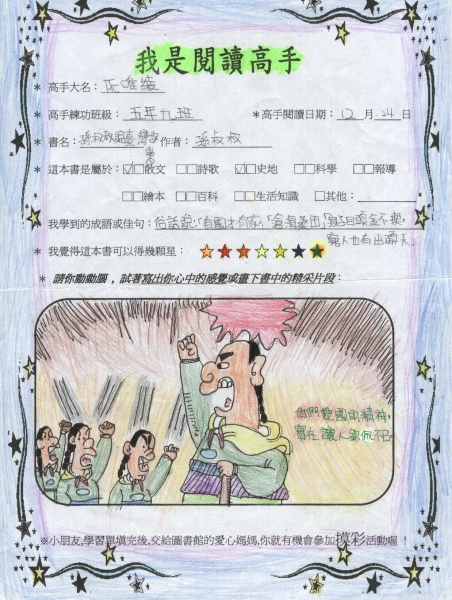 我是閱讀高手
* 高手大名：
* 高手練功班級：五年九班 *高手閱讀日期：12月24日
* 書名：孫叔叔 作者：孫叔叔
* 這本書是屬於：☑□散文 □□詩歌 ☑□史地 □□科學 □□報導
□□繪本 □□百科 □□生活知識 □其他：
* 我學到的成語或佳句：俗話說：「有國才有家」
窮人也有出頭天
* 我覺得這本書可以得幾顆星：
* 請你動動腦，試著寫出你心中的感覺或畫下書中的精采片段：
他們愛國的精神，
實在讓人氣佩不已
※小朋友,學習單填完後,交給圖書館的愛心媽媽,你就有機會參加摸彩活動喔！